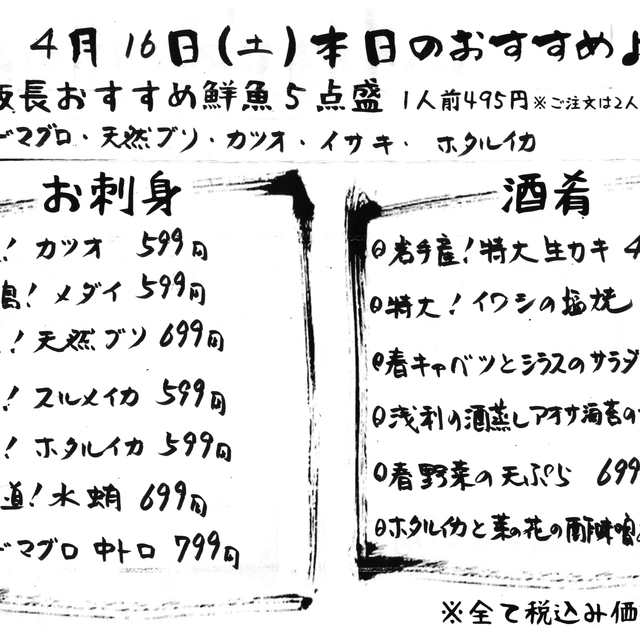 4月16日(土)本日のおすすめ
板長おすすめ鮮魚5点盛 1人前495円※ご注文は2人
マグロ・天然ブリ・カツオ・イサキ・ホタルイカ
お刺身
! カツオ 599円
島! メダイ 599円
! 天然ブリ 699円
! スルメイカ 599円
! ホタルイカ 599円
道! 水蛸 699円
マグロ 中トロ 799円
酒肴
岩手産! 特大生カキ 4
特大! イワシの塩焼
春キャベツとシラスのサラダ
浅利の酒蒸しアオサ海苔の
春野菜の天ぷら 699
ホタルイカと菜の花の酢味噌
※全て税込み価